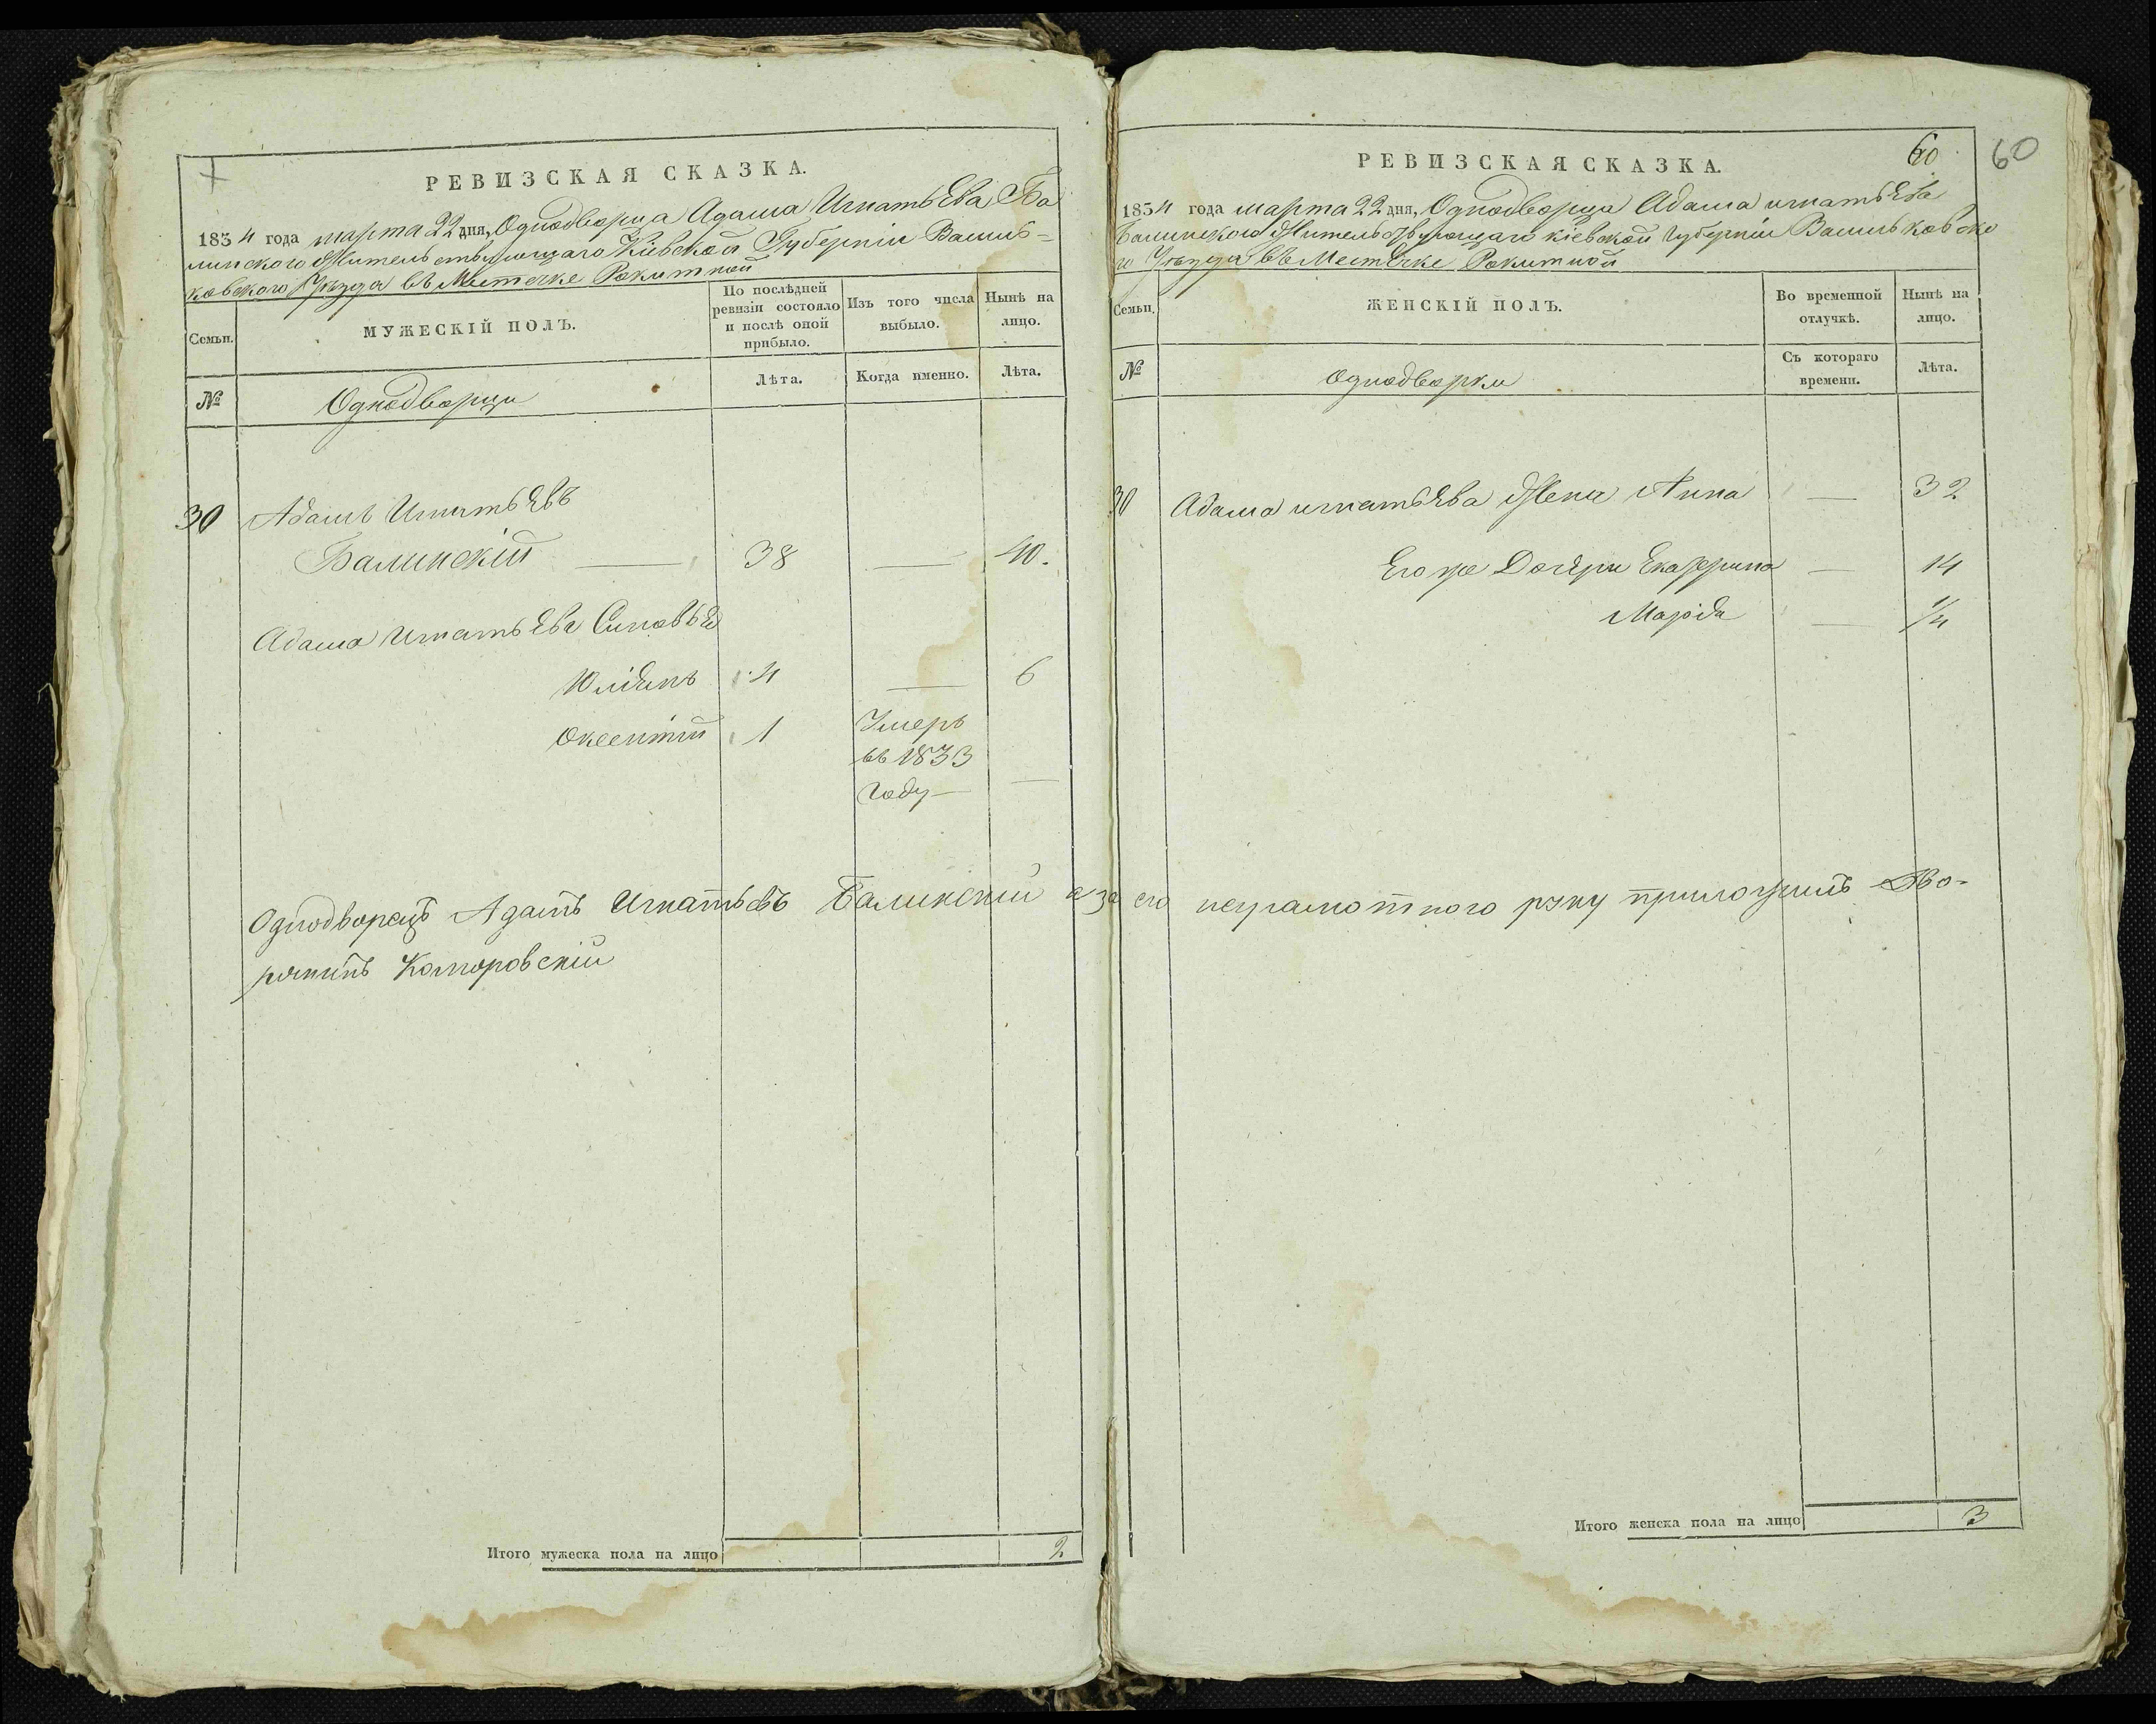 РЕВИЗСКАЯ СКАЗКА.
1834 года марта 22 дня, Однодворца Адама Игнатьева Ба
линского Жительствующаго Кіевской Губерніи Василь=
ковского Уѣзда въ Местечке Рокитной
Семьи.
МУЖЕСКІЙ ПОЛЪ.
По послѣдней ревизіи состояло и послѣ оной прибыло.
Изъ того числа выбыло.
Нынѣ на лицо.
№
Однодворцы
Лѣта.
Когда именно.
Лѣта.
30 Адамъ Игнатьевъ
Балинскій — 38 — 40.
Адама Игнатьева Сыновья
Юліянъ 4 — 6
1 Умеръ
въ 1833
Году — —
Однодворецъ Адамъ Игнатьевъ Балинскій а за его неграмотного руку приложилъ Дво-
рянинъ Коморовскій
Итого мужеска пола на лицо 2
60
60
РЕВИЗСКАЯ СКАЗКА.
1834 года марта 22 дня, Однодворца Адама игнатьева
Балинского Жительствующаго кіевской Губерніи Васильковско
го Уѣзда въ Местечке Рокитной
Семьи.
ЖЕНСКІЙ ПОЛЪ.
Во временной отлучкѣ.
Нынѣ на лицо.
№
Однодворки
Съ котораго времени.
Лѣта.
30 Адама игнатьева Жена Анна — 32
Его же Дочери Екатерина — 14
Марія — 1/4
Итого женска пола на лицо 3